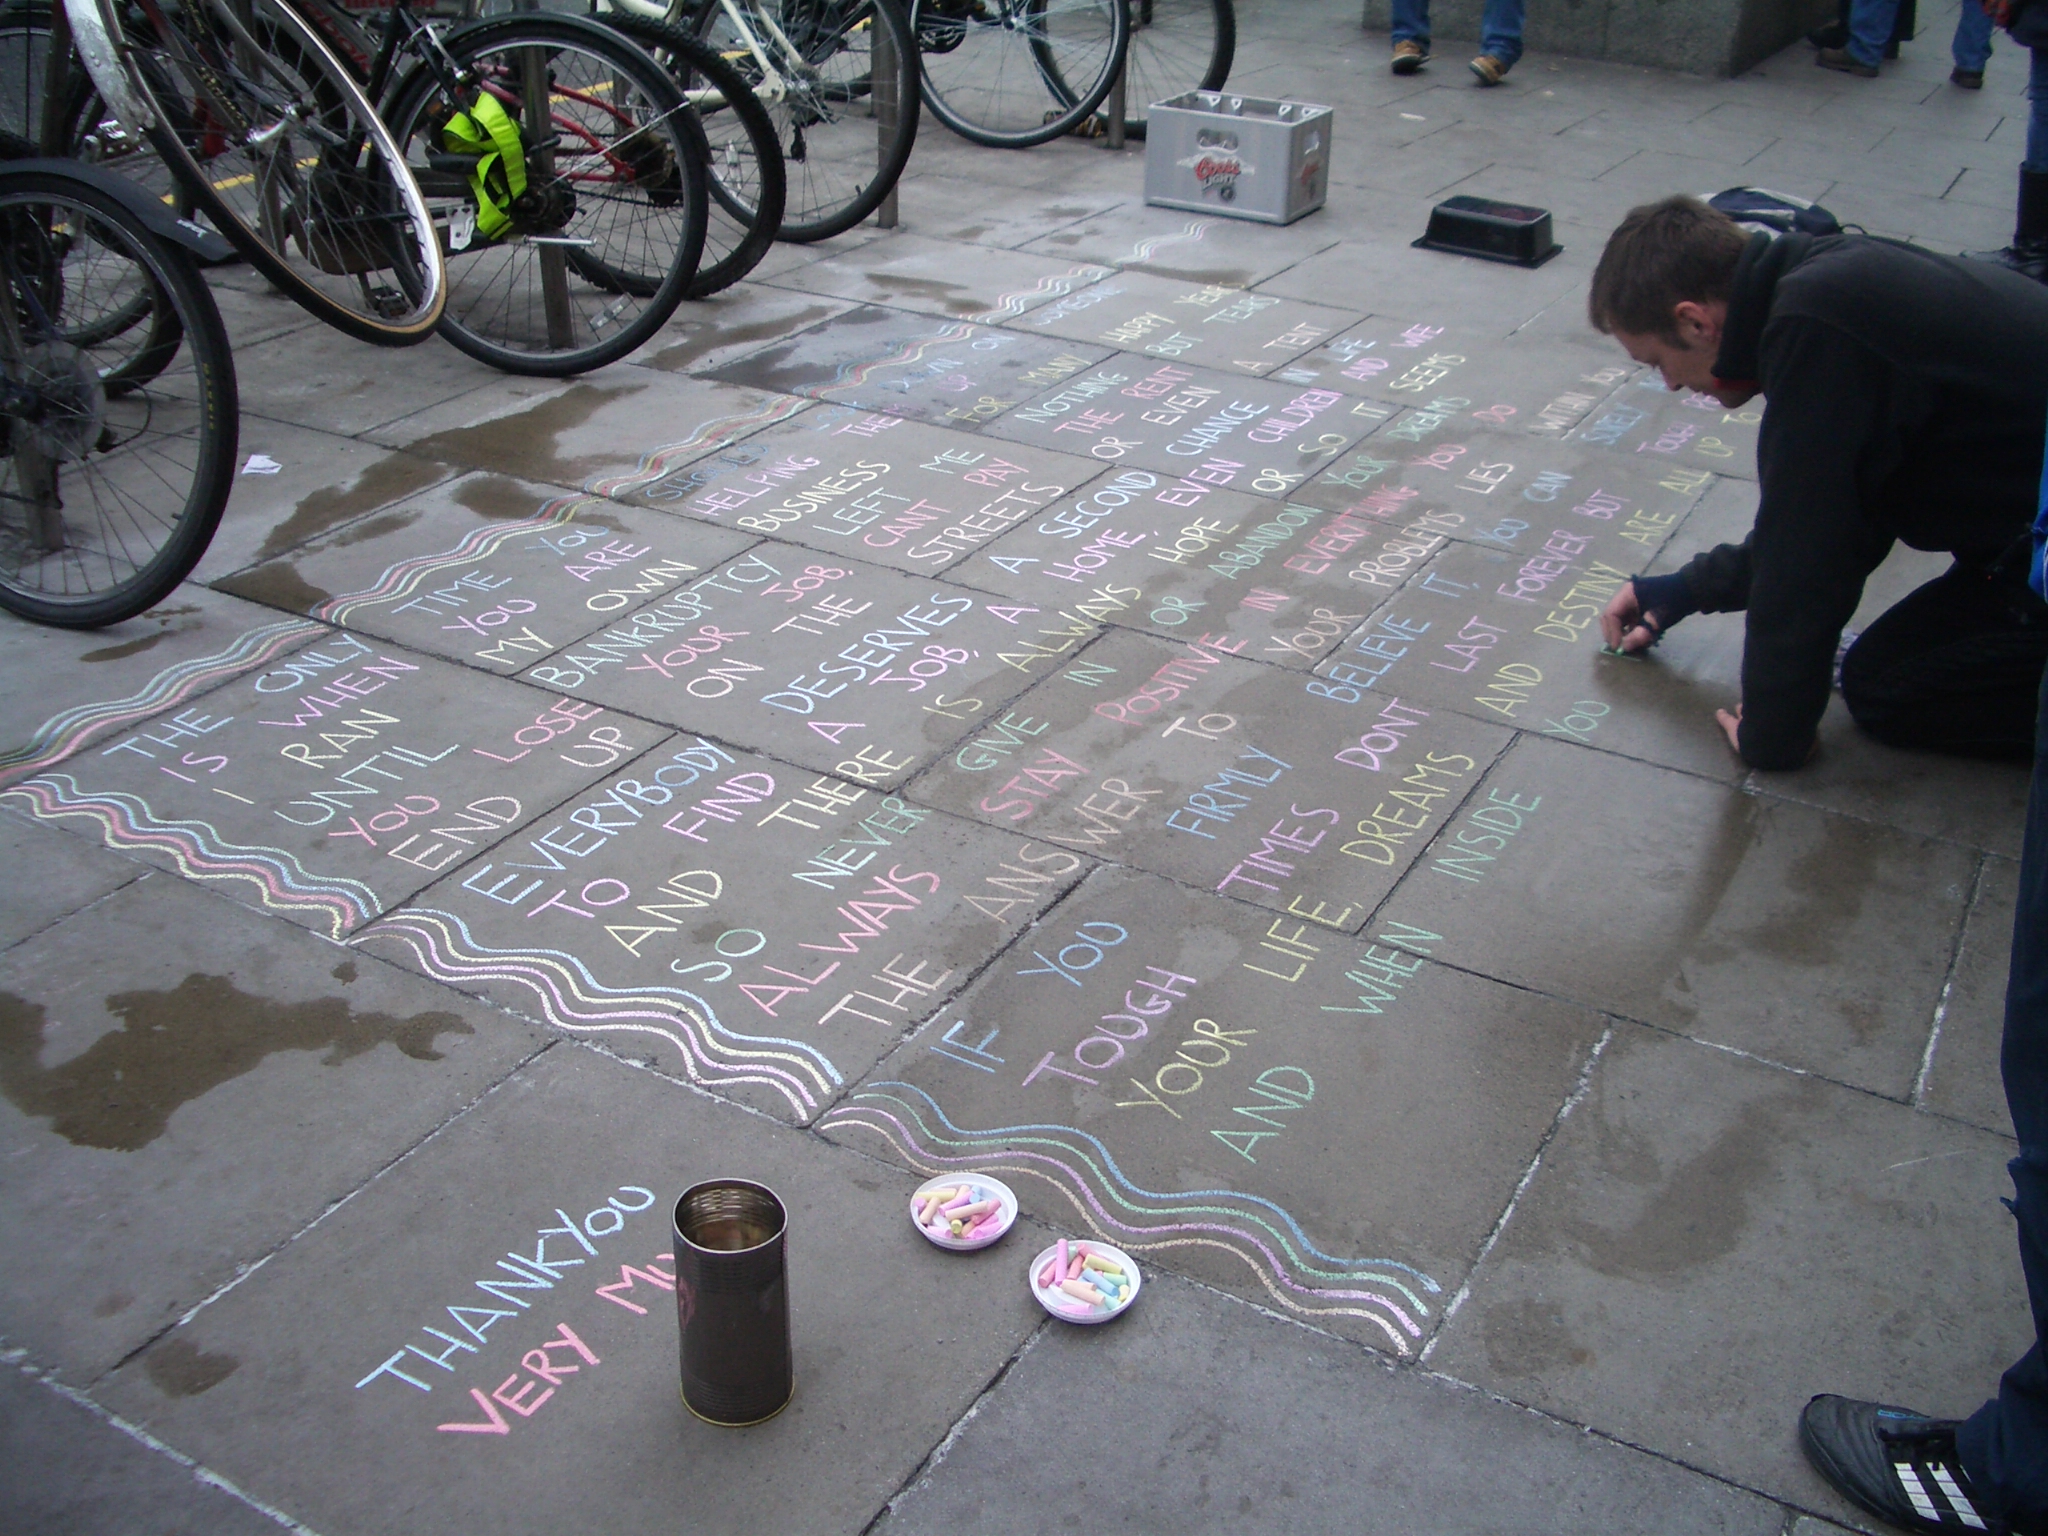 Coors
LIGHT
THE ONLY TIME YOU SHOULD LOOK DOWN ON SOMEONE
IS WHEN YOU ARE HELPING THEM UP
I RAN MY OWN BUSINESS FOR MANY HAPPY YEARS
UNTIL BANKRUPTCY LEFT ME NOTHING BUT TEARS
YOU LOSE YOUR JOB, CANT PAY THE RENT
END UP ON THE STREETS OR EVEN A TENT
EVERYBODY DESERVES A SECOND CHANCE IN LIFE
TO FIND A JOB, A HOME, EVEN CHILDREN AND WE
AND THERE IS ALWAYS HOPE OR SO IT SEEMS
SO NEVER GIVE IN OR ABANDON YOUR DREAMS
ALWAYS STAY POSITIVE IN EVERYTHING YOU DO
THE ANSWER TO YOUR PROBLEMS LIES WITHIN YOU
IF YOU FIRMLY BELIEVE IT, YOU CAN SURELY
TOUGH TIMES DONT LAST FOREVER BUT TOUGH
YOUR LIFE, DREAMS AND DESTINY ARE ALL UP TO
AND WHEN INSIDE YOU
THANKYOU
VERY MU